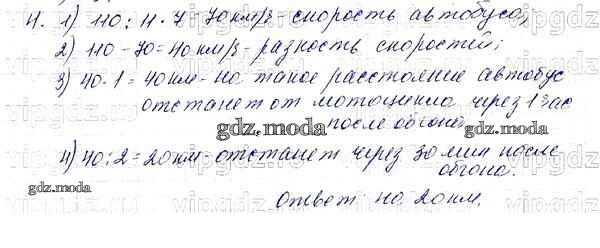 4. 1) 110 : 11 · 7 = 70 км/з - скорость автобуса;
2) 110 - 70 = 40 км/з - разность скоростей;
3) 40 · 1 = 40 км - на такое расстояние автобус
отстанет от мотоцикла через 1 час
после обгона
4) 40 : 2 = 20 км - отстанет через 30 мин после
обгона.
Ответ на 20 км.
gdz.moda
gdz.moda
gdz.moda